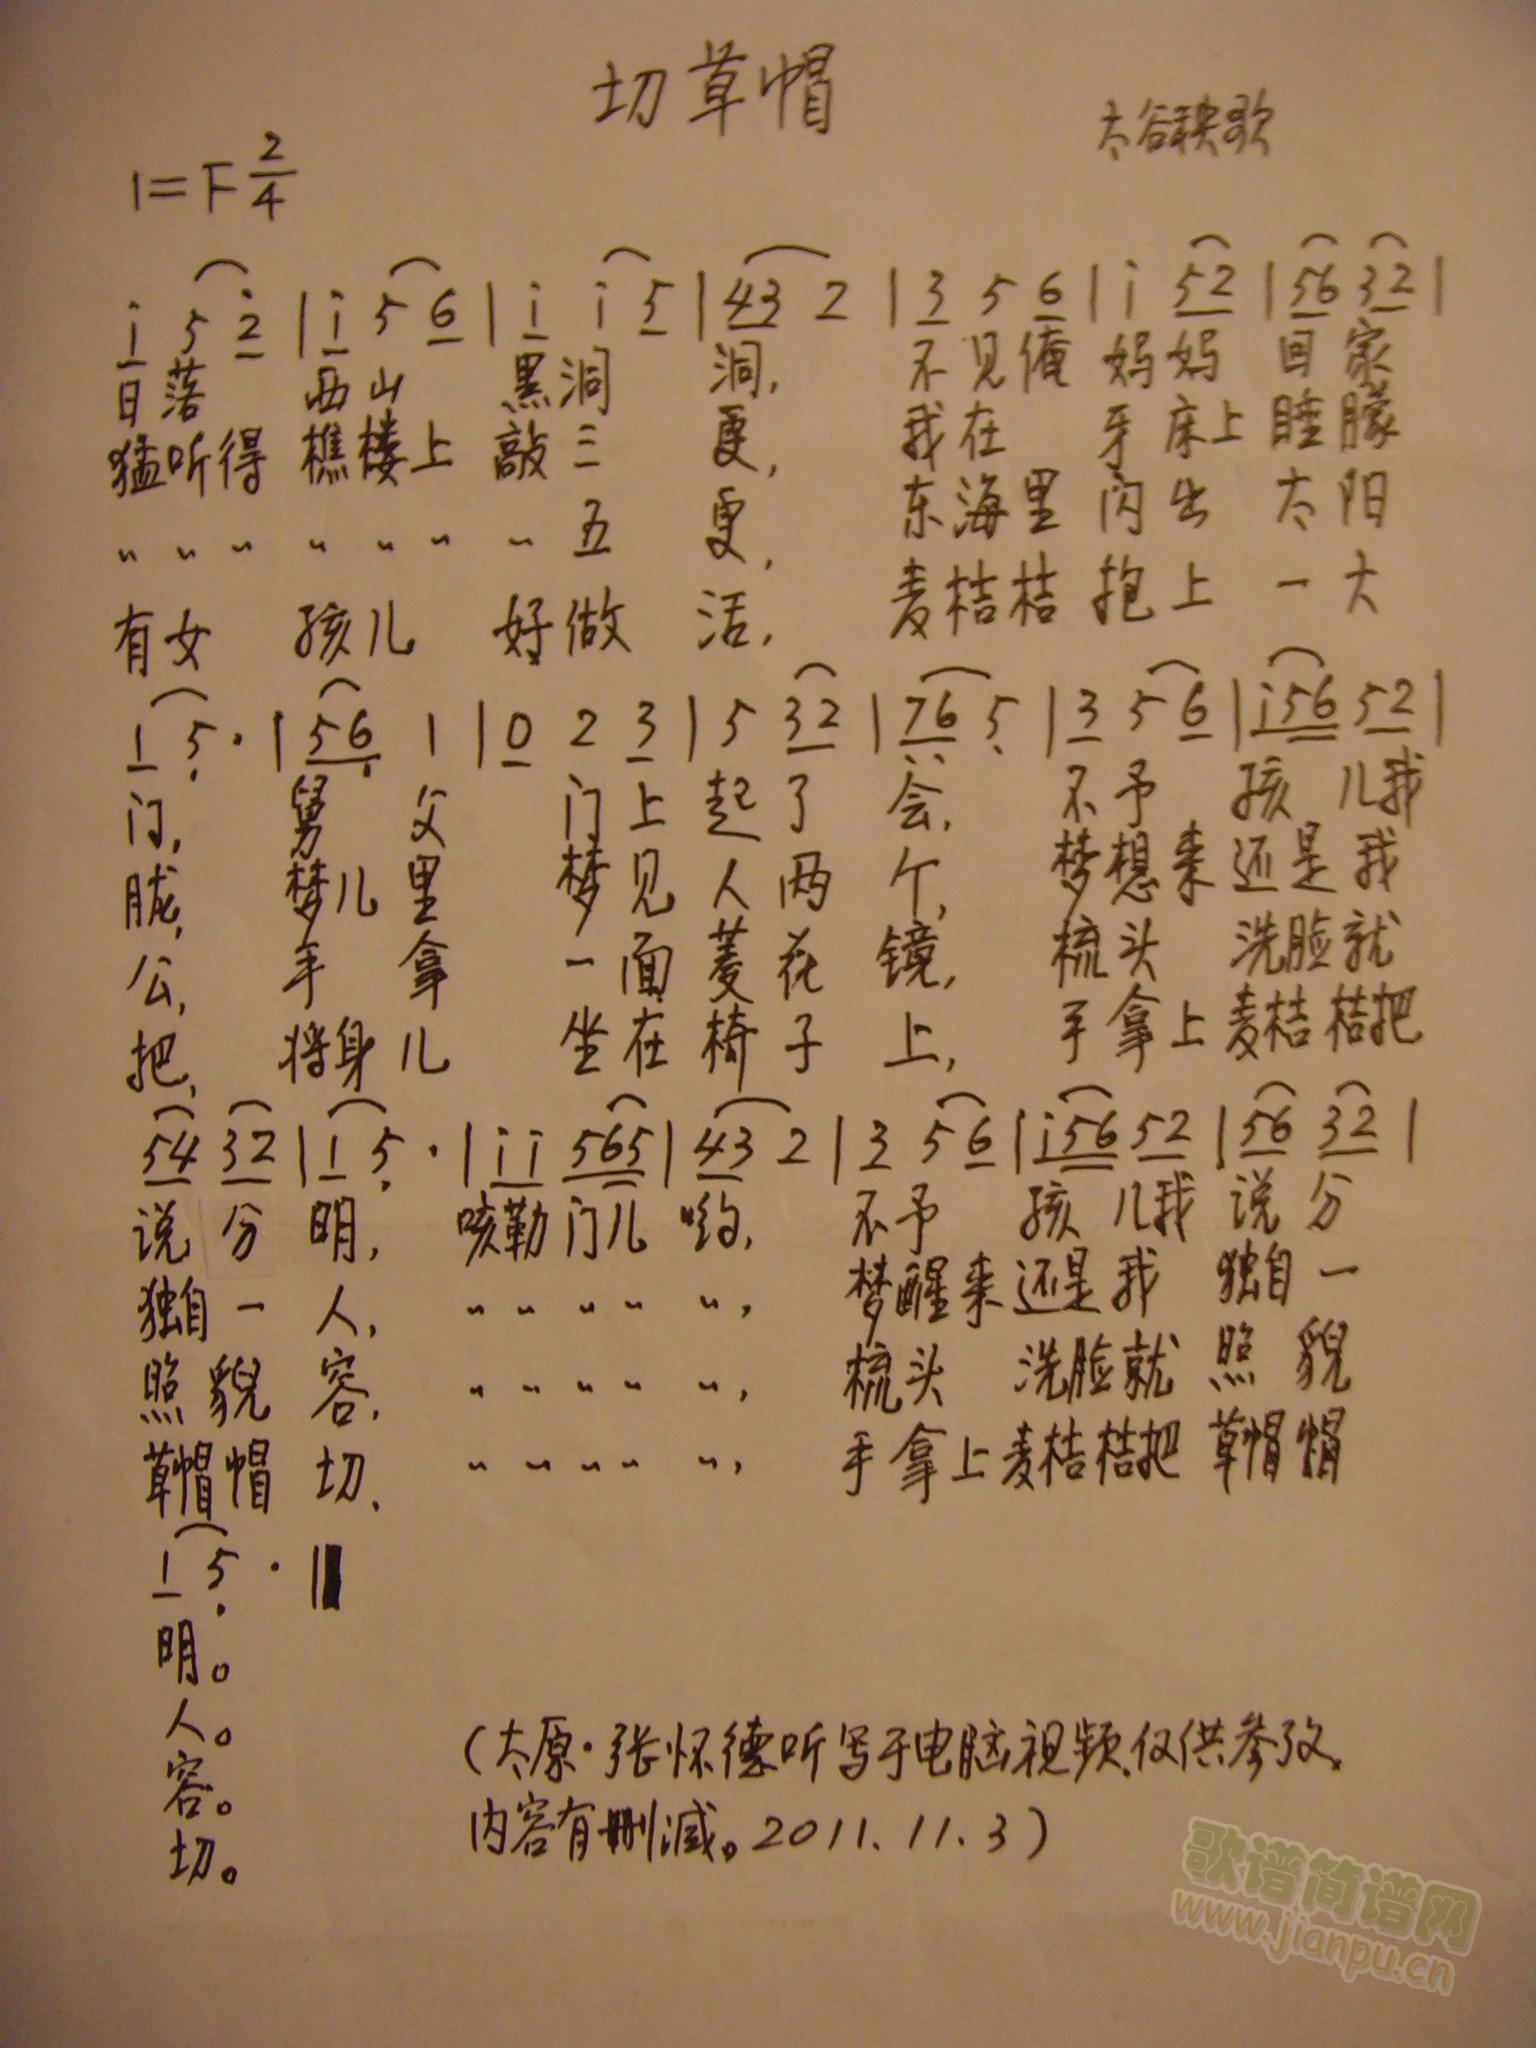 切草帽
太谷秧歌
1=F 2/4
i 5 2̇ | i 5 6 | i i 5 | 43 2 | 3 5 6 | i 52 | 56 32 |
日落 西山 黑洞 洞, 不见俺 妈妈 回家
猛听得 樵楼上 敲三 更, 我在 牙床上 睡朦
〃 〃 〃 〃 〃 〃 〃 五 更, 东海里 闪出 太阳
有女 孩儿 好做 活, 麦桔桔 抱上 一大
1 5̣· | 56̣ 1 | 0 2 3 | 5 32 | 7̣6̣ 5̣ | 3 5 6 | i56 52 |
门, 舅 父 门上 起了 会, 不予 孩 儿我
胧, 梦儿 里 梦见 人两 个, 梦想来 还是 我
公, 手 拿 一面 菱花 镜, 梳头 洗脸就
把, 将身儿 坐在 椅子 上, 手拿上 麦桔 桔把
54 32 | 1 5̣· | i i 565 | 43 2 | 3 5 6 | i56 52 | 56 32 |
说 分 明, 咳勒门儿 哟, 不予 孩 儿我 说 分
独自 一 人, 〃 〃 〃 〃 〃, 梦醒来 还是 我 独自 一
照 貌 容, 〃 〃 〃 〃 〃, 梳头 洗脸就 照 貌
草帽帽 切, 〃 〃 〃 〃 〃, 手拿上 麦桔桔把 草帽帽
1 5̣· ‖
明。
人。
容。
切。
(太原·张怀德听写于电脑视频,仅供参攷,
内容有删减。2011.11.3)
歌谱简谱网
www.jianpu.cn